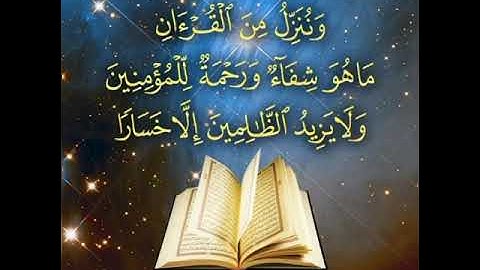 وَنُنَزِّلُ مِنَ ٱلْقُرْءَانِ
مَا هُوَ شِفَآءٌ وَرَحْمَةٌ لِّلْمُؤْمِنِينَ
وَلَا يَزِيدُ ٱلظَّٰلِمِينَ إِلَّا خَسَارًا